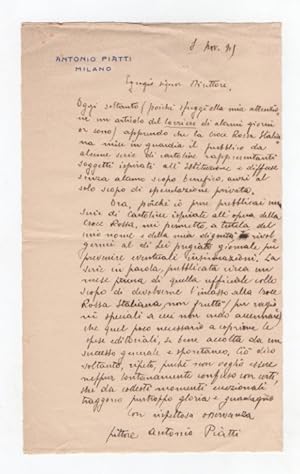 ANTONIO PIATTI
MILANO
8 Nov. 915
Egregio signor Direttore,
Ogni soltanto (poichè sfuggì alla mia attenzio-
ne un articolo del Corriere di alcuni giorni
or sono) apprendo che la Croce Rossa Italia-
na mise in guardia il pubblico da
alcune serie di cartoline rappresentanti
soggetti ispirati all'istituzione e diffuse
senza alcuno scopo benefico, anzi al
solo scopo di speculazione privata.
Ora, poichè io pure pubblicai una
serie di Cartoline ispirate all'opera della
Croce Rossa, mi permetto, a tutela del
mio nome e della mia dignità rivol-
germi al di Lei pregiato giornale per
prevenire eventuali insinuazioni. La
serie in parola, pubblicata circa un
mese prima di quella ufficiale collo
scopo di devolverne l'incasso alla Croce
Rossa Italiana, non fruttò (per ragio
ni speciali a cui non vado accennare)
che quel poco necessario a coprirne le
spese editoriali, se bene accolta da un
successo generale e spontaneo. Ciò dico
soltanto, ripeto, perchè non voglio essere
neppur lontanamente confuso con certi,
che da codesti momenti eccezionali
traggono purtroppo gloria e guadagno
Con rispettosa osservanza
pittore Antonio Piatti